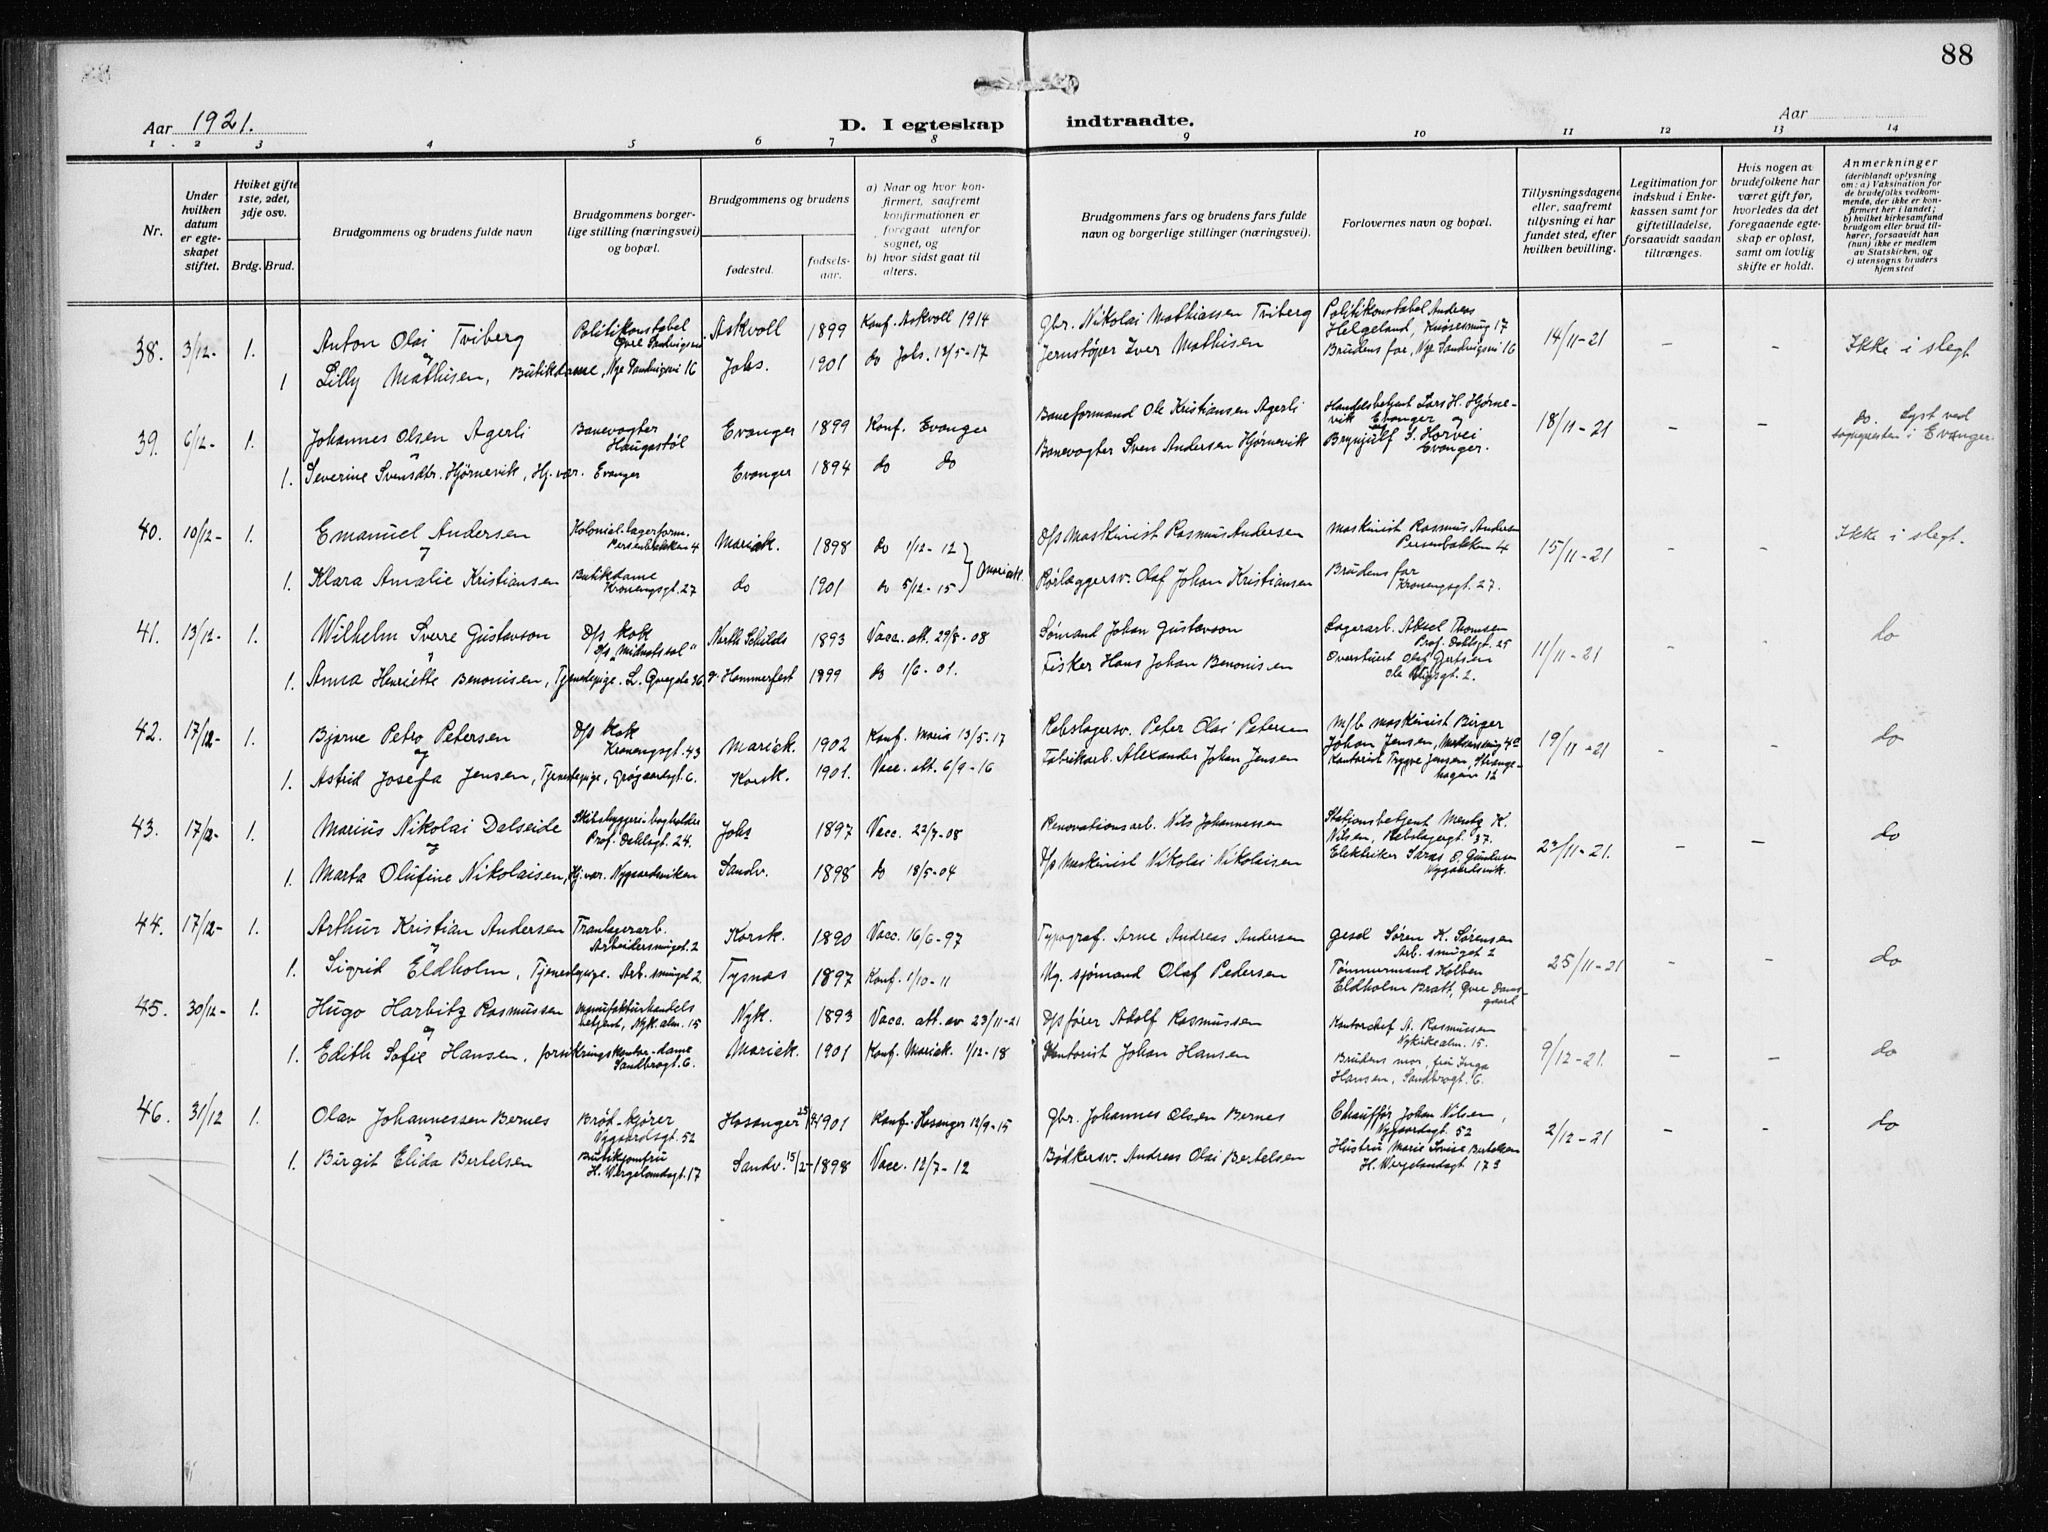 88
Aar 1921.
D. I egteskap indtraadte.
Aar
1 2 3 4 5 6 7 8 9 10 11 12 13 14
Nr.
Under hvilken datum er egteskapet stiftet.
Hviket gifte 1ste, 2det, 3dje osv.
Brdg. Brud.
Brudgommens og brudens fulde navn
Brudgommens borgerlige stilling (næringsvei) og bopæl.
Brudgommens og brudens
fødested.
fødselsaar.
a) Naar og hvor konfirmert, saafremt konfirmationen er foregaaet utenfor sognet, og
b) hvor sidst gaat til alters.
Brudgommens fars og brudens fars fulde navn og borgerlige stillinger (næringsvei).
Forlovernes navn og bopæl.
Tillysningsdagene eller, saafremt tillysning ei har fundet sted, efter hvilken bevilling.
Legitimation for indskud i Enkekassen samt for giftetilladelse, forsaavidt saadan tiltrænges.
Hvis nogen av brudefolkene har været gift før, hvorledes da det foregaaende egteskap er opløst, samt om lovlig skifte er holdt.
Anmerkninger (deriblandt oplysning om: a) Vaksination for de brudefolks vedkommende, der ikke er konfirmert her i landet; b) hvilket kirkesamfund brudgom eller brud tilhører, forsaavidt han (hun) ikke er medlem av Statskirken, og c) utensogns bruders hjemsted
38. 3/12- 1. Anton Olai Tviberg Politikonstabel Øvre Sandvigsvei Askvoll 1899 Konf. Askvoll 1914 Gbr. Nikolai Mathiassen Tviberg Politikonstabel Andreas Helgeland, Knøsesmug 17 14/11-21 - - Ikke i slegt
og
1 Lilly Mathisen, Butikdame, Nye Sandvigsvei 16 Johs. 1901 do Johs. 13/5-17 Jernstøper Iver Mathisen Brudens far, Nye Sandvigsvei 16
39. 6/12- 1. Johannes Olsen Agerli Banevogter Haugastøl Evanger 1899 Konf. Evanger Baneformand Ole Kristiansen Agerli Handelsbetjent Lars H. Hjørnevik Evanger og 18/11-21 - - do. Lyst ved sognepresten i Evanger.
og
1. Severine Svensdtr. Hjørnevik, Hj. vær. Evanger Evanger 1894 do do Banevogter Sven Andersen Hjørnevik Brynjulf S. Horvei Evanger.
40. 10/12- 1. Emanuel Andersen Kolonial-lagerform. Persenbakken 4 Mariek. 1898 do 1/12-12 D/s Maskinist Rasmus Andersen Maskinist Rasmus Andersen Persenbakken 4 15/11-21 - - Ikke i slegt.
og
1. Klara Amalie Kristiansen Butikdame Kronengsgt. 27 do 1901 do 5/12-15 Mariek. Rørlæggersv. Olaf Johan Kristiansen Brudens far Kronengsgt. 27.
41. 13/12- 1. Wilhelm Sverre Gustavson D/s kok D/s "Midnatssol" North Schilds 1893 Vacc. att. 29/8-08 Sømand Johan Gustavson Lagerarb. Aksel Thomsen Prof. Dahlsgt. 25 11/11-21 - - do
og
1. Anna Henriette Benonisen, Tjenestepige. L. Øvregate 36, Hammerfest 1899 do 1/6-01. Fisker Hans Johan Benonisen Overstuert Olaf Gertsen Ole Vigsgt. 2.
42. 17/12- 1. Bjarne Petro Petersen D/s kok Kronengsgt. 43 Mariek. 1902 Konf. Maria 13/5-17 Rebslagersv. Peter Olai Petersen M/b maskinist Birger Johan Jensen, 19/11-21 - - do
og
1. Astrid Josefa Jensen, Tjenestepige, Grøgaardsgt. 6. Korsk. 1901. Vacc. att. 6/9-16 Fabrikarb. Alexander Johan Jensen Kontorist Trygve Jensen, Strangehagen 12
43. 17/12- 1. Marius Nikolai Dalseide Skibsbyggeri-bogholder Prof. Dahlsgt. 24. Johs 1897 Vacc. 22/7-08 Renovationsarb. Nils Johannessen Stationsbetjent Mentz K. Nilsen, Rebslagergt 37. 22/11-21. - - do
og
1. Marta Olufine Nikolaisen, Hj. vær. Nygaardsviken Sandv. 1898 do 18/5-04 D/s Maskinist Nikolai Nikolaisen Elektriker Nygaardsvik.
44. 17/12- 1. Arthur Kristian Andersen Tranlagerarb. Arbeidersmuget 2 Korsk. 1890 Vacc. 16/6-97 Typograf. Arne Andreas Andersen Søren K. Sørensen Arb. smuget 2 25/11-21 - - do
og
1. Sigrid Eldholm, Tjenestepige. Arb. smuget 2. Tysnæs 1897 Konf. 1/10-11 Ug. sjømand Olaf Pedersen Tømmermand Kolben Eldholm Bratt, Øvre Damsgaard
45. 30/12- 1. Hugo Harbitz Rasmussen Manufakturhandelsbetjent, Nyk. alm. 15 Nyk. 1893 Vacc. att. av 23/11-21 D/s fører Adolf Rasmussen Kontorchef A. Rasmussen Nykirkealm. 15. 9/12-21. - - do
og
1. Edith Sofie Hansen, forsikringskontor-dame Sandbrogt. 6. Mariek. 1901 Konf. Mariek. 1/12-18 Kontorist Johan Hansen Brudens mor, fru Inga Hansen, Sandbrogt. 6.
46. 31/12 1. Olav Johannessen Bernes Brød-kjører Nygaardsgt. 52 Hosanger 1901 Konf. Hosanger 12/9-15 Gbr. Johannes Olsen Bernes Chauffør Johan Nilsen, Nygaardsgt 52 2/12-21 - - do
og
1. Birgit Elida Bertelsen Butikjomfru H. Wergelandsgt. 17 Sandv. 15/2- 1898 Vacc. 12/7-12 Bødkersv. Andreas Olai Bertelsen Hustru Marie Lovise Bertelsen H. Wergelandsgt 17 3